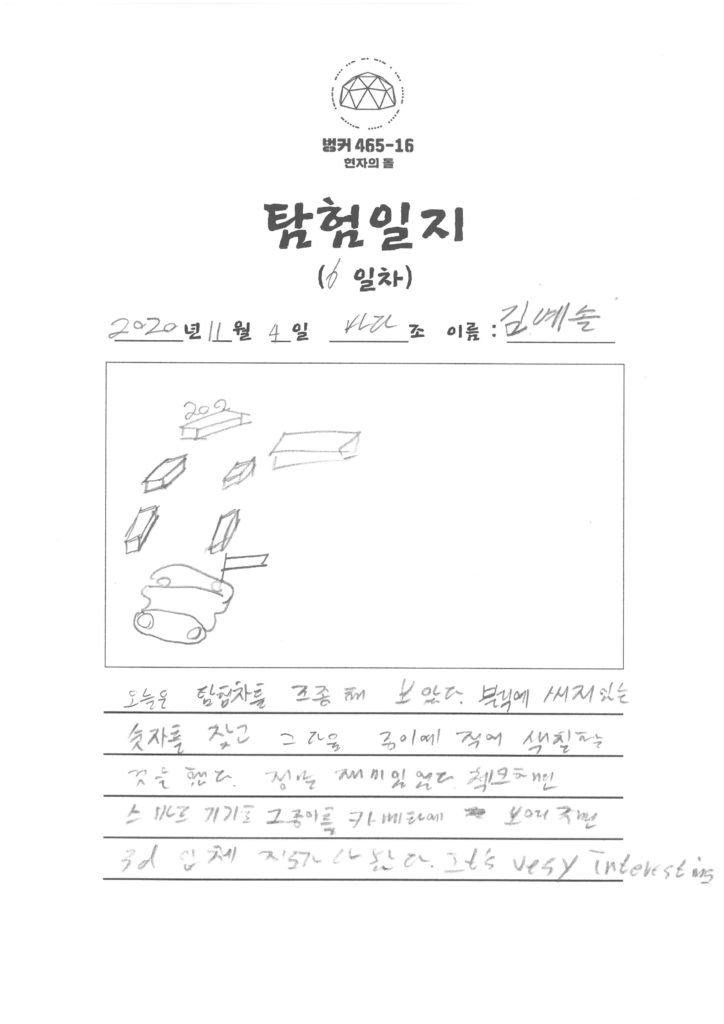 벙커 465-16
현자의 돌
탐험일지
(6 일차)
2020년 11월 4일 바다 조 이름 : 김예솔
202
오늘은 탐험차를 조종해 보았다. 블럭에 써져있는
숫자를 찾고 그 다음 종이에 적어 색칠하는
것을 했다. 정말 재미있었다. 체크하면
스마트 기기로 그종이를 카메라에 보여주면
3d 입체 지도가 나온다. It's very Interesting